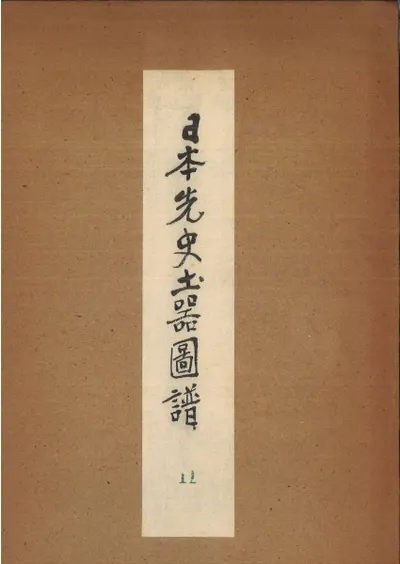 日本先史土器圖譜
11